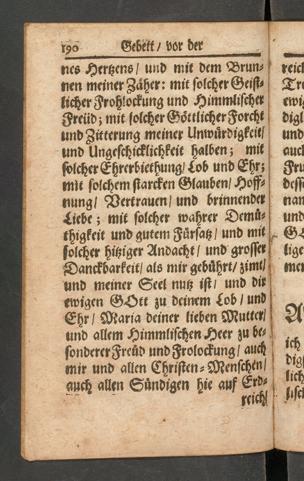 190 Gebett / vor der
nes Hertzens / und mit dem Brun-
nen meiner Zäher: mit solcher Geist-
licher Frohlockung und Himmlischer
Freüd; mit solcher Göttlicher Forcht
und Zitterung meiner Unwürdigkeit /
und Ungeschicklichkeit halben; mit
solcher Ehrerbiethung / Lob und Ehr;
mit solchem starcken Glauben / Hoff-
nung / Vertrauen / und brinnender
Liebe; mit solcher wahrer Demü-
thigkeit und gutem Fürsatz / und mit
solcher hitziger Andacht / und grosser
Danckbarkeit / als mir gebührt / zimt /
und meiner Seel nutz ist / und dir
ewigen GOtt zu deinem Lob / und
Ehr / Maria deiner lieben Mutter /
und allem Himmlischen Heer zu be-
sonderer Freüd und Frolockung / auch
mir und allen Christen-Menschen /
auch allen Sündigen hie auf Erd-
reich /